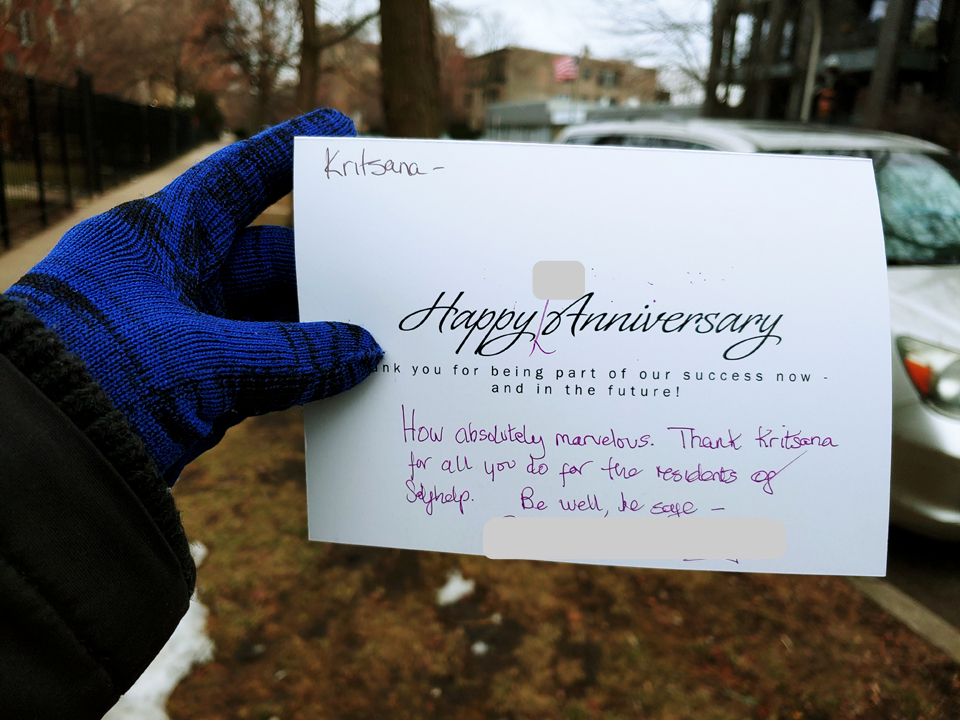 Kritsana -
Happy Anniversary
ank you for being part of our success now -
and in the future!
How absolutely marvelous. Thank Kritsana
for all you do for the residents of
Selfhelp. Be well, be safe -